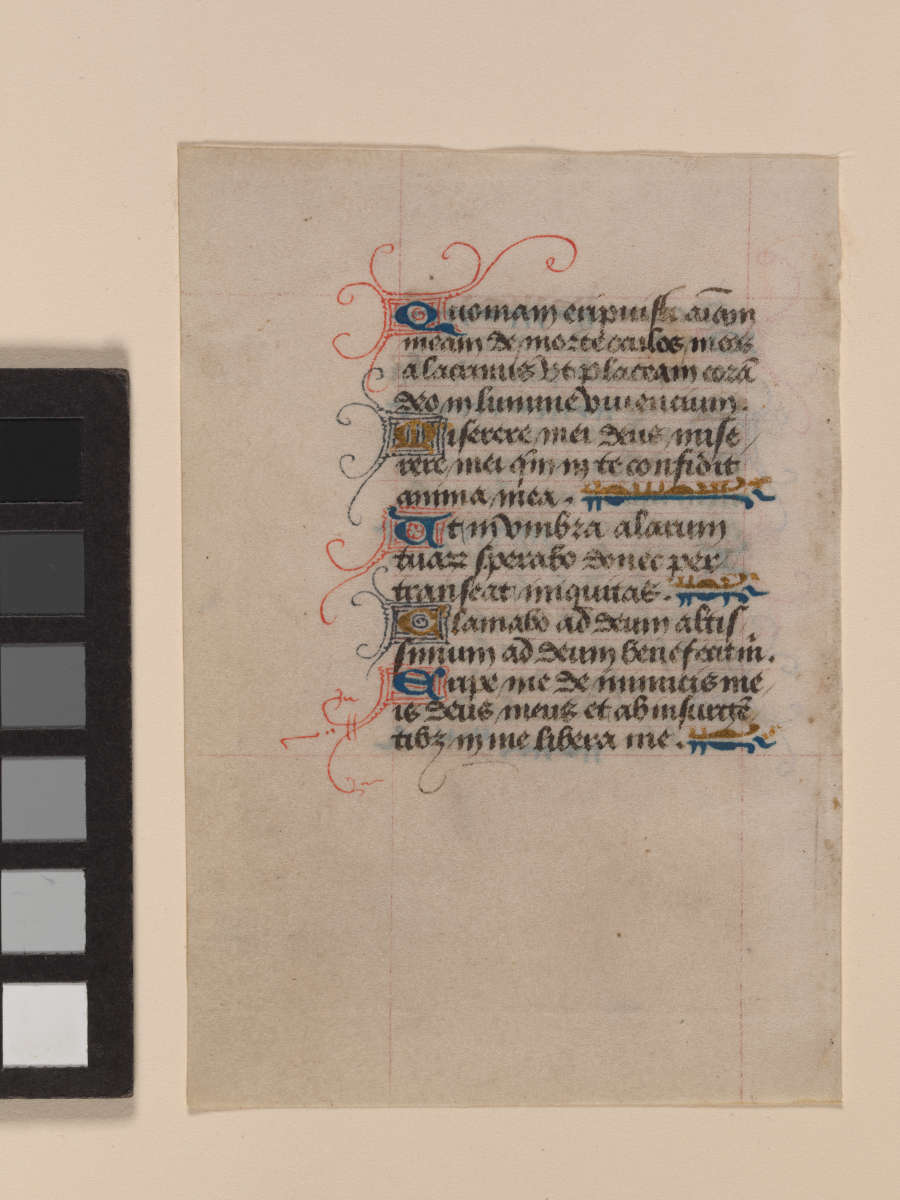 Quoniam eripuisti aīam
meam de morte oculos meos
a lacrimis vt placeam corā
deo in lumine viuencium.
Miserere mei deus mise
rere mei qm̄ in te confidit
anima mea.
Et in vmbra alarum
tuarꝝ sperabo donec per
transeat iniquitas.
Clamabo ad deum altis
simum ad deum benefecit m̄.
Eripe me de inimicis me
is deus meus et ab insurgē
tibꝫ in me libera me.